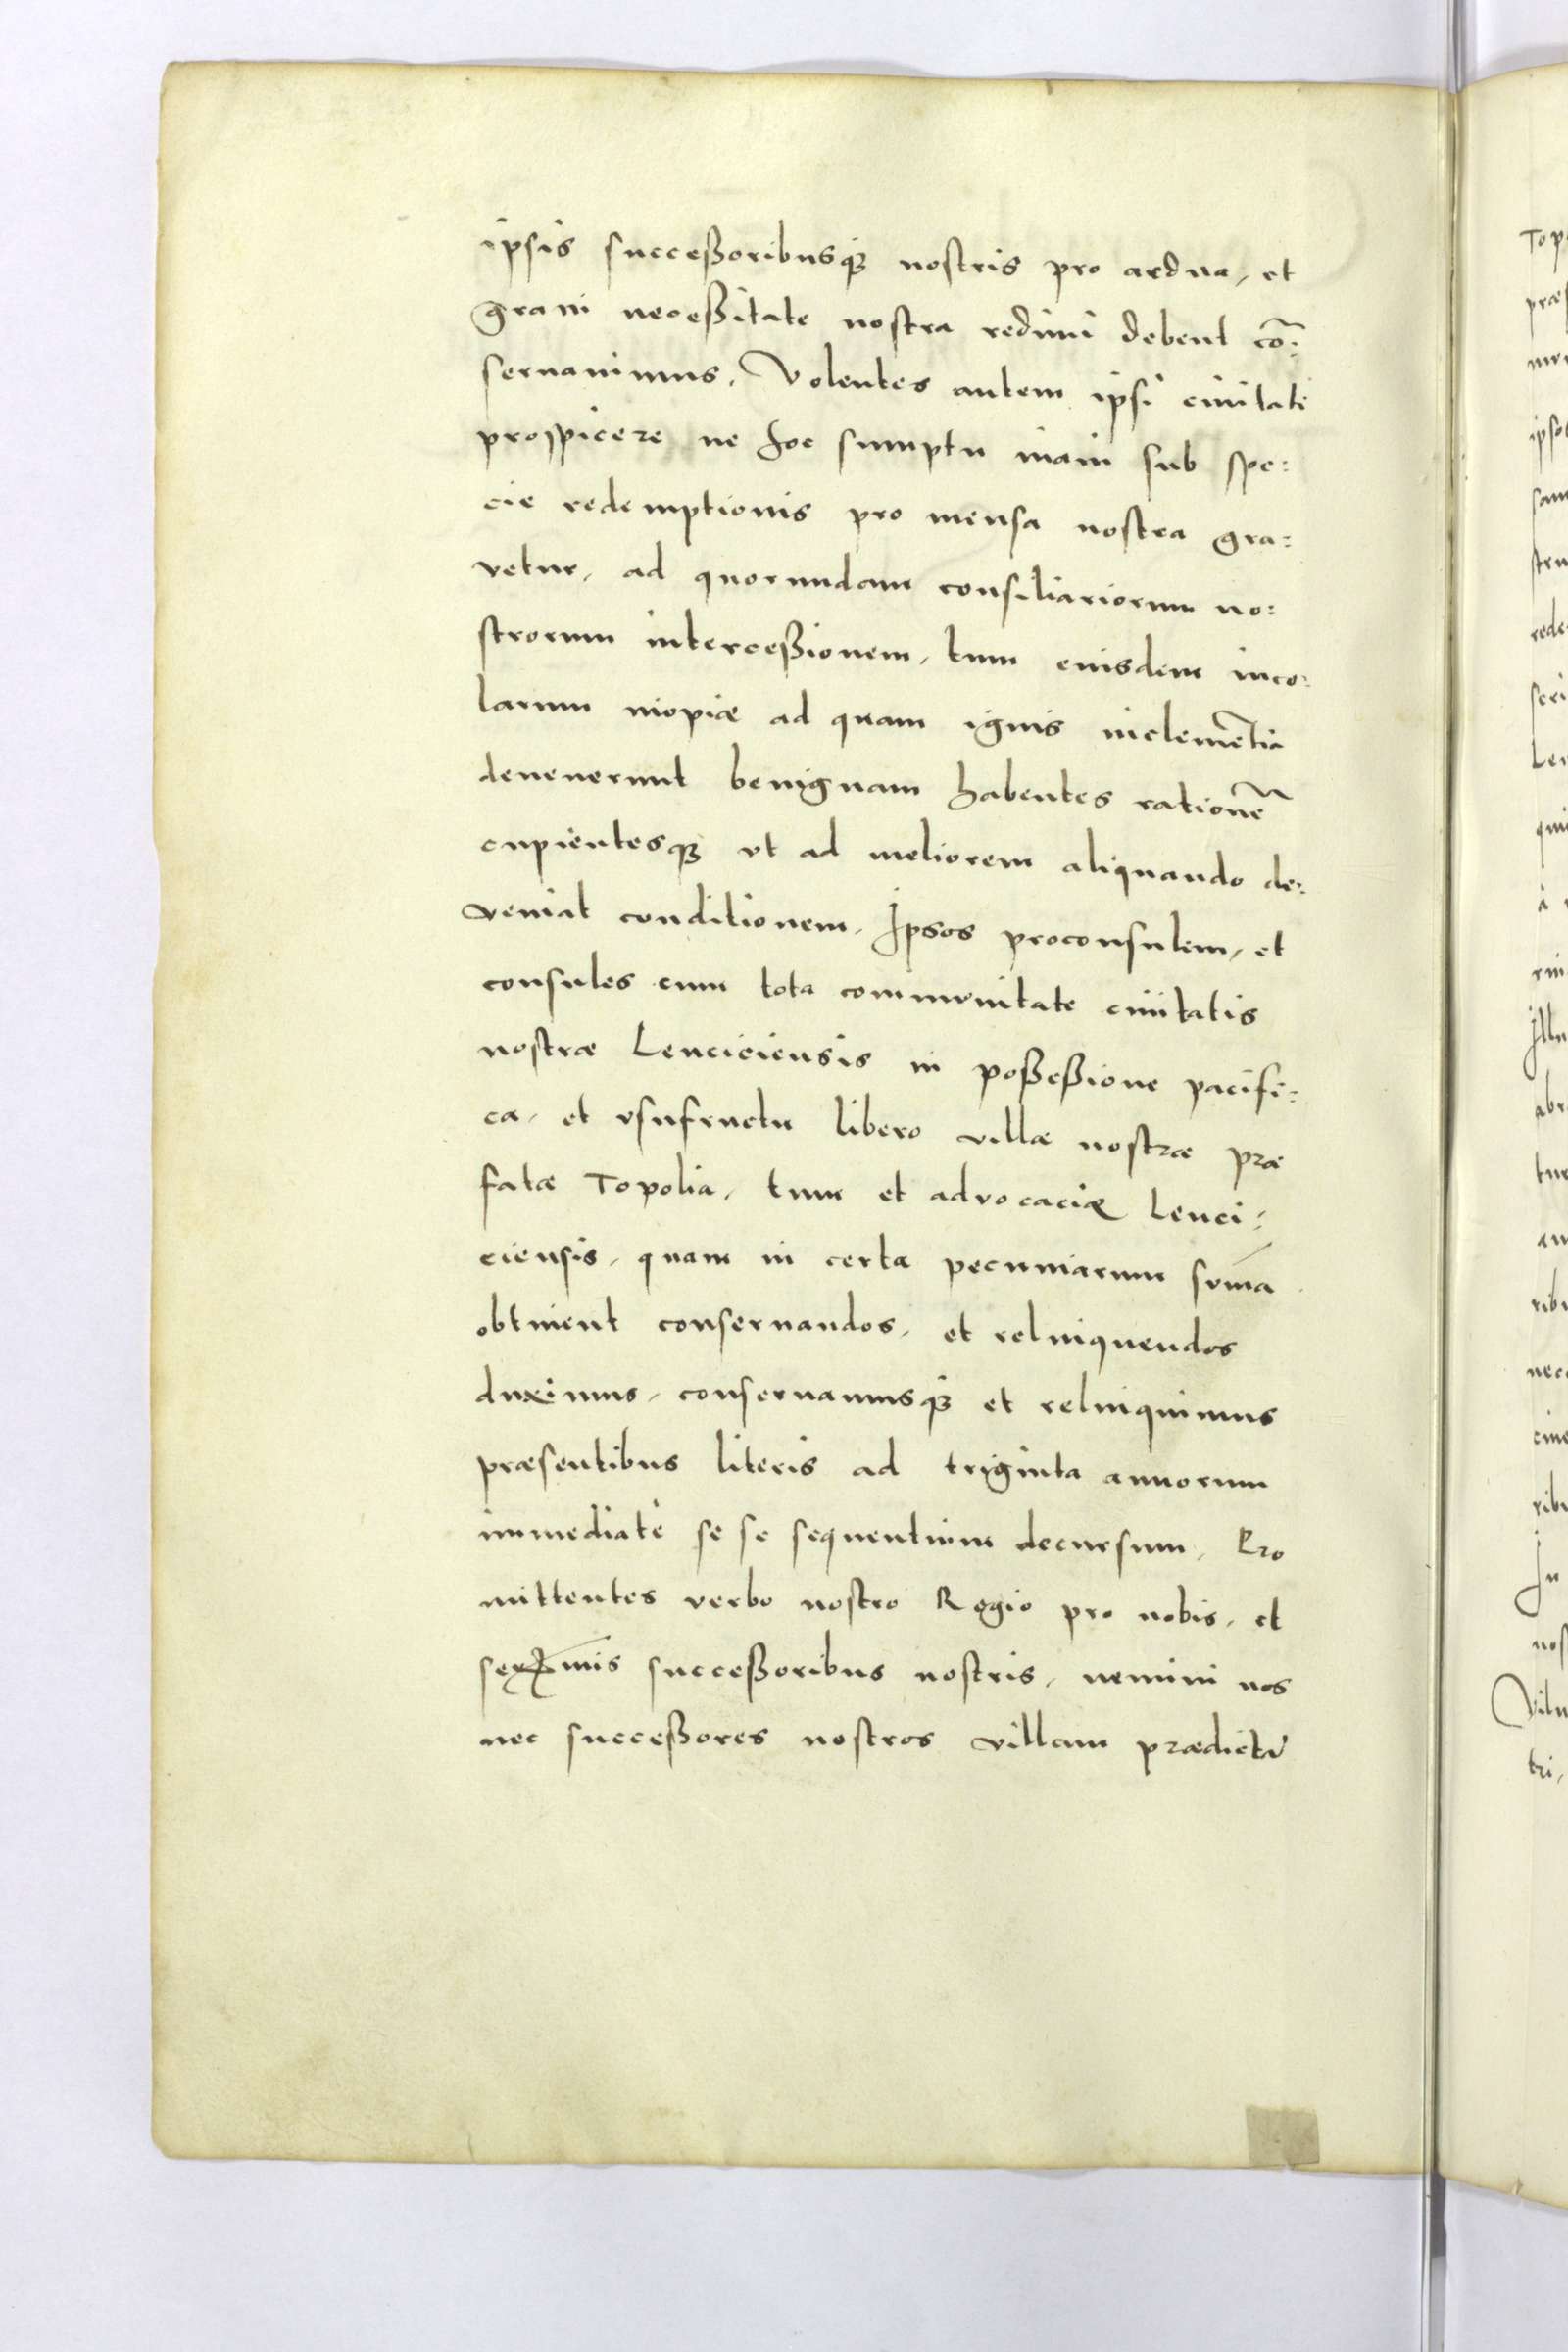 ipsis successoribusq3 nostris pro ardua, et
graui necessitate nostra redimi debent cō:
seruauimus. Volentes autem ipsi ciuitati
prospicere ne hoc sumptu inani sub spe:
cie redemptionis pro mensa nostra gra:
vetur, ad quorundam consiliariorum no:
strorum intercessionem, tum eiusdem inco:
larum inopiæ ad quam ignis inclemētia
devenerunt benignam habentes rationē
cupientesq3 vt ad meliorem aliquando de:
veniat conditionem. Ipsos proconsulem, et
consules cum tota communitate ciuitatis
nostræ Lenciciensis in possessione pacifi:
ca, et vsufructu libero villæ nostræ præ
fatæ Topolia, tum et advocaciæ Lenci:
ciensis, quam in certa pecuniarum sūma
obtinent conseruandos, et relinquendos
duximus, conseruamusq3 et relinquimus
præsentibus literis ad triginta annorum
immediatè se se sequentium decursum. Pro
mittentes verbo nostro Regio pro nobis, et
serx̄mis successoribus nostris, nemini nos
nec successores nostros villam prædictā
Top
præ
ipso
sam
stru
rede
seri
Len
qui
à
rin
Illu
abr
tur
an
ribu
nec
cim
ribu
In
nos
Viln
tri,